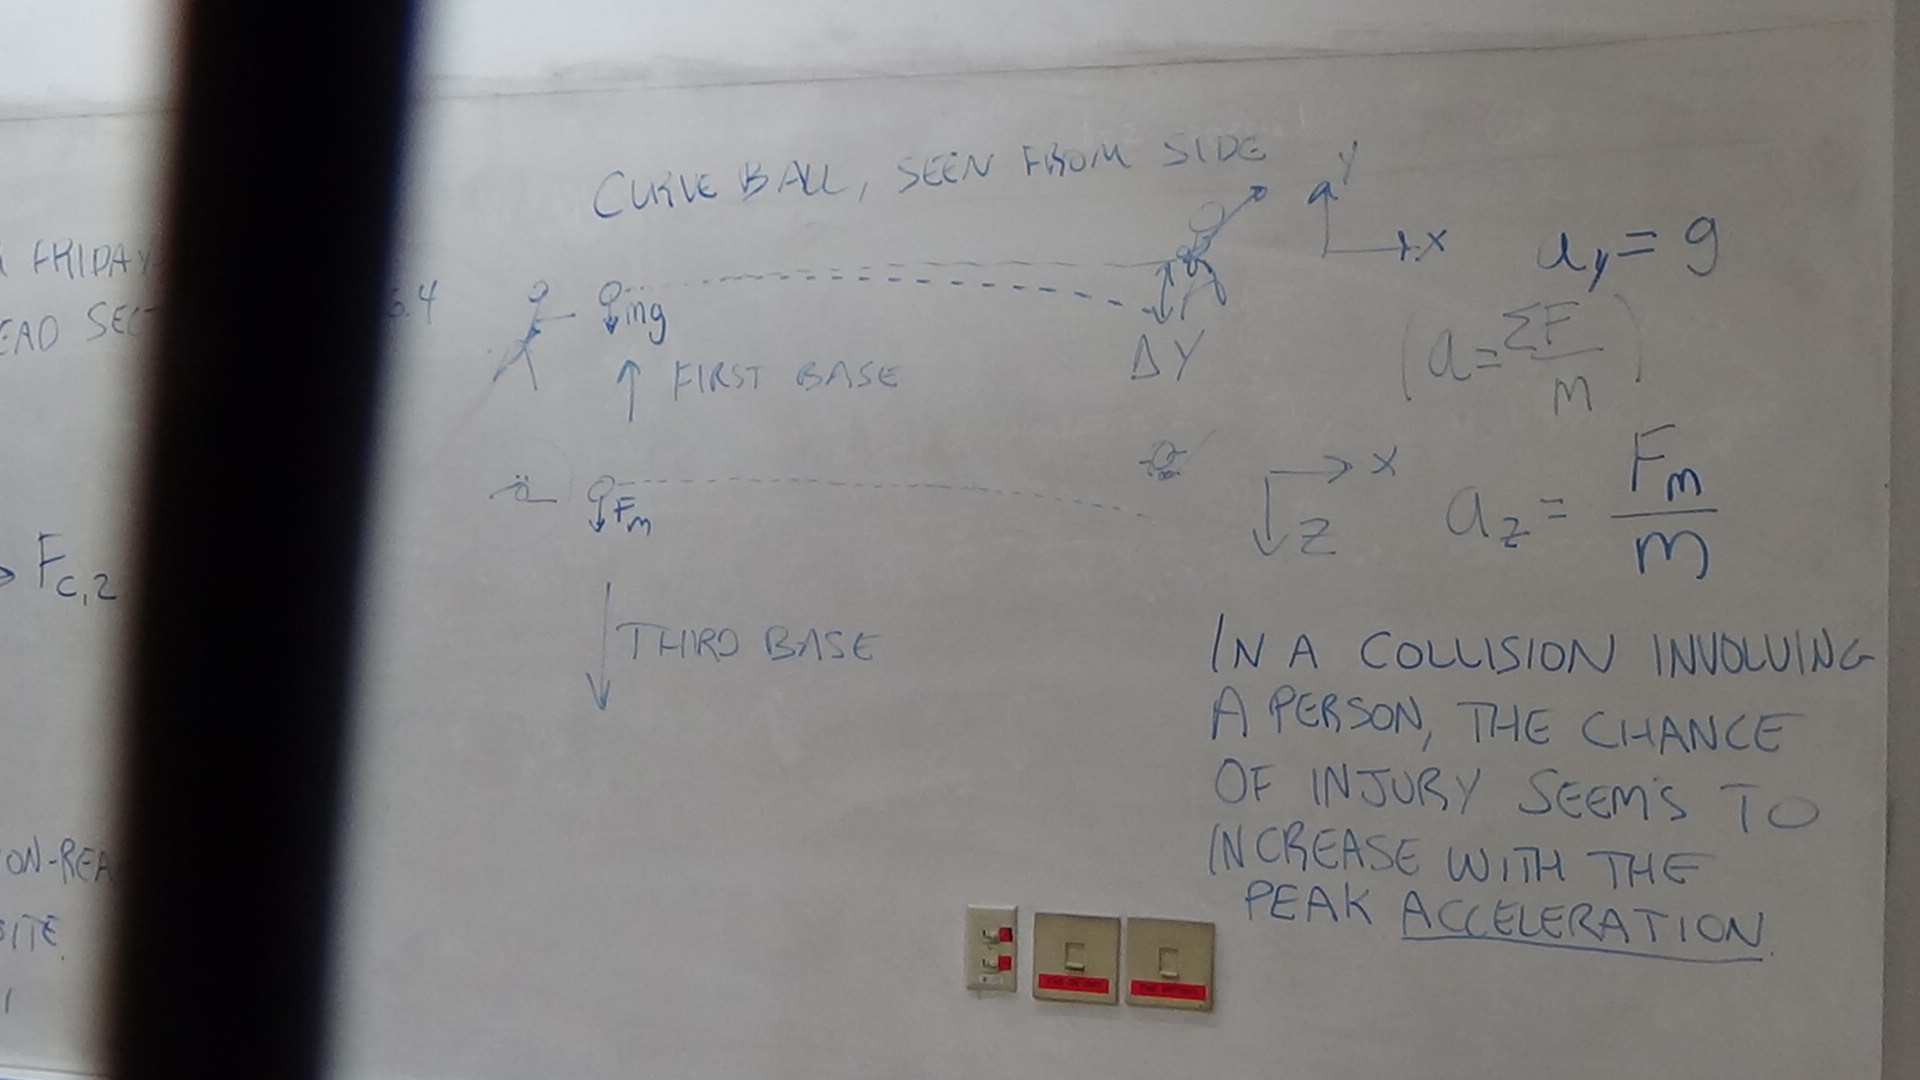 FRIDAY
EAD SEC
6.4
F_c,2
ON-REA
SITE
CURVE BALL, SEEN FROM SIDE
Y
X
a_y = g
mg
↑ FIRST BASE
ΔY
(a = ΣF/m)
F_m
X
Z
a_z = F_m/m
↓ THIRD BASE
IN A COLLISION INVOLVING
A PERSON, THE CHANCE
OF INJURY SEEMS TO
INCREASE WITH THE
PEAK ACCELERATION.